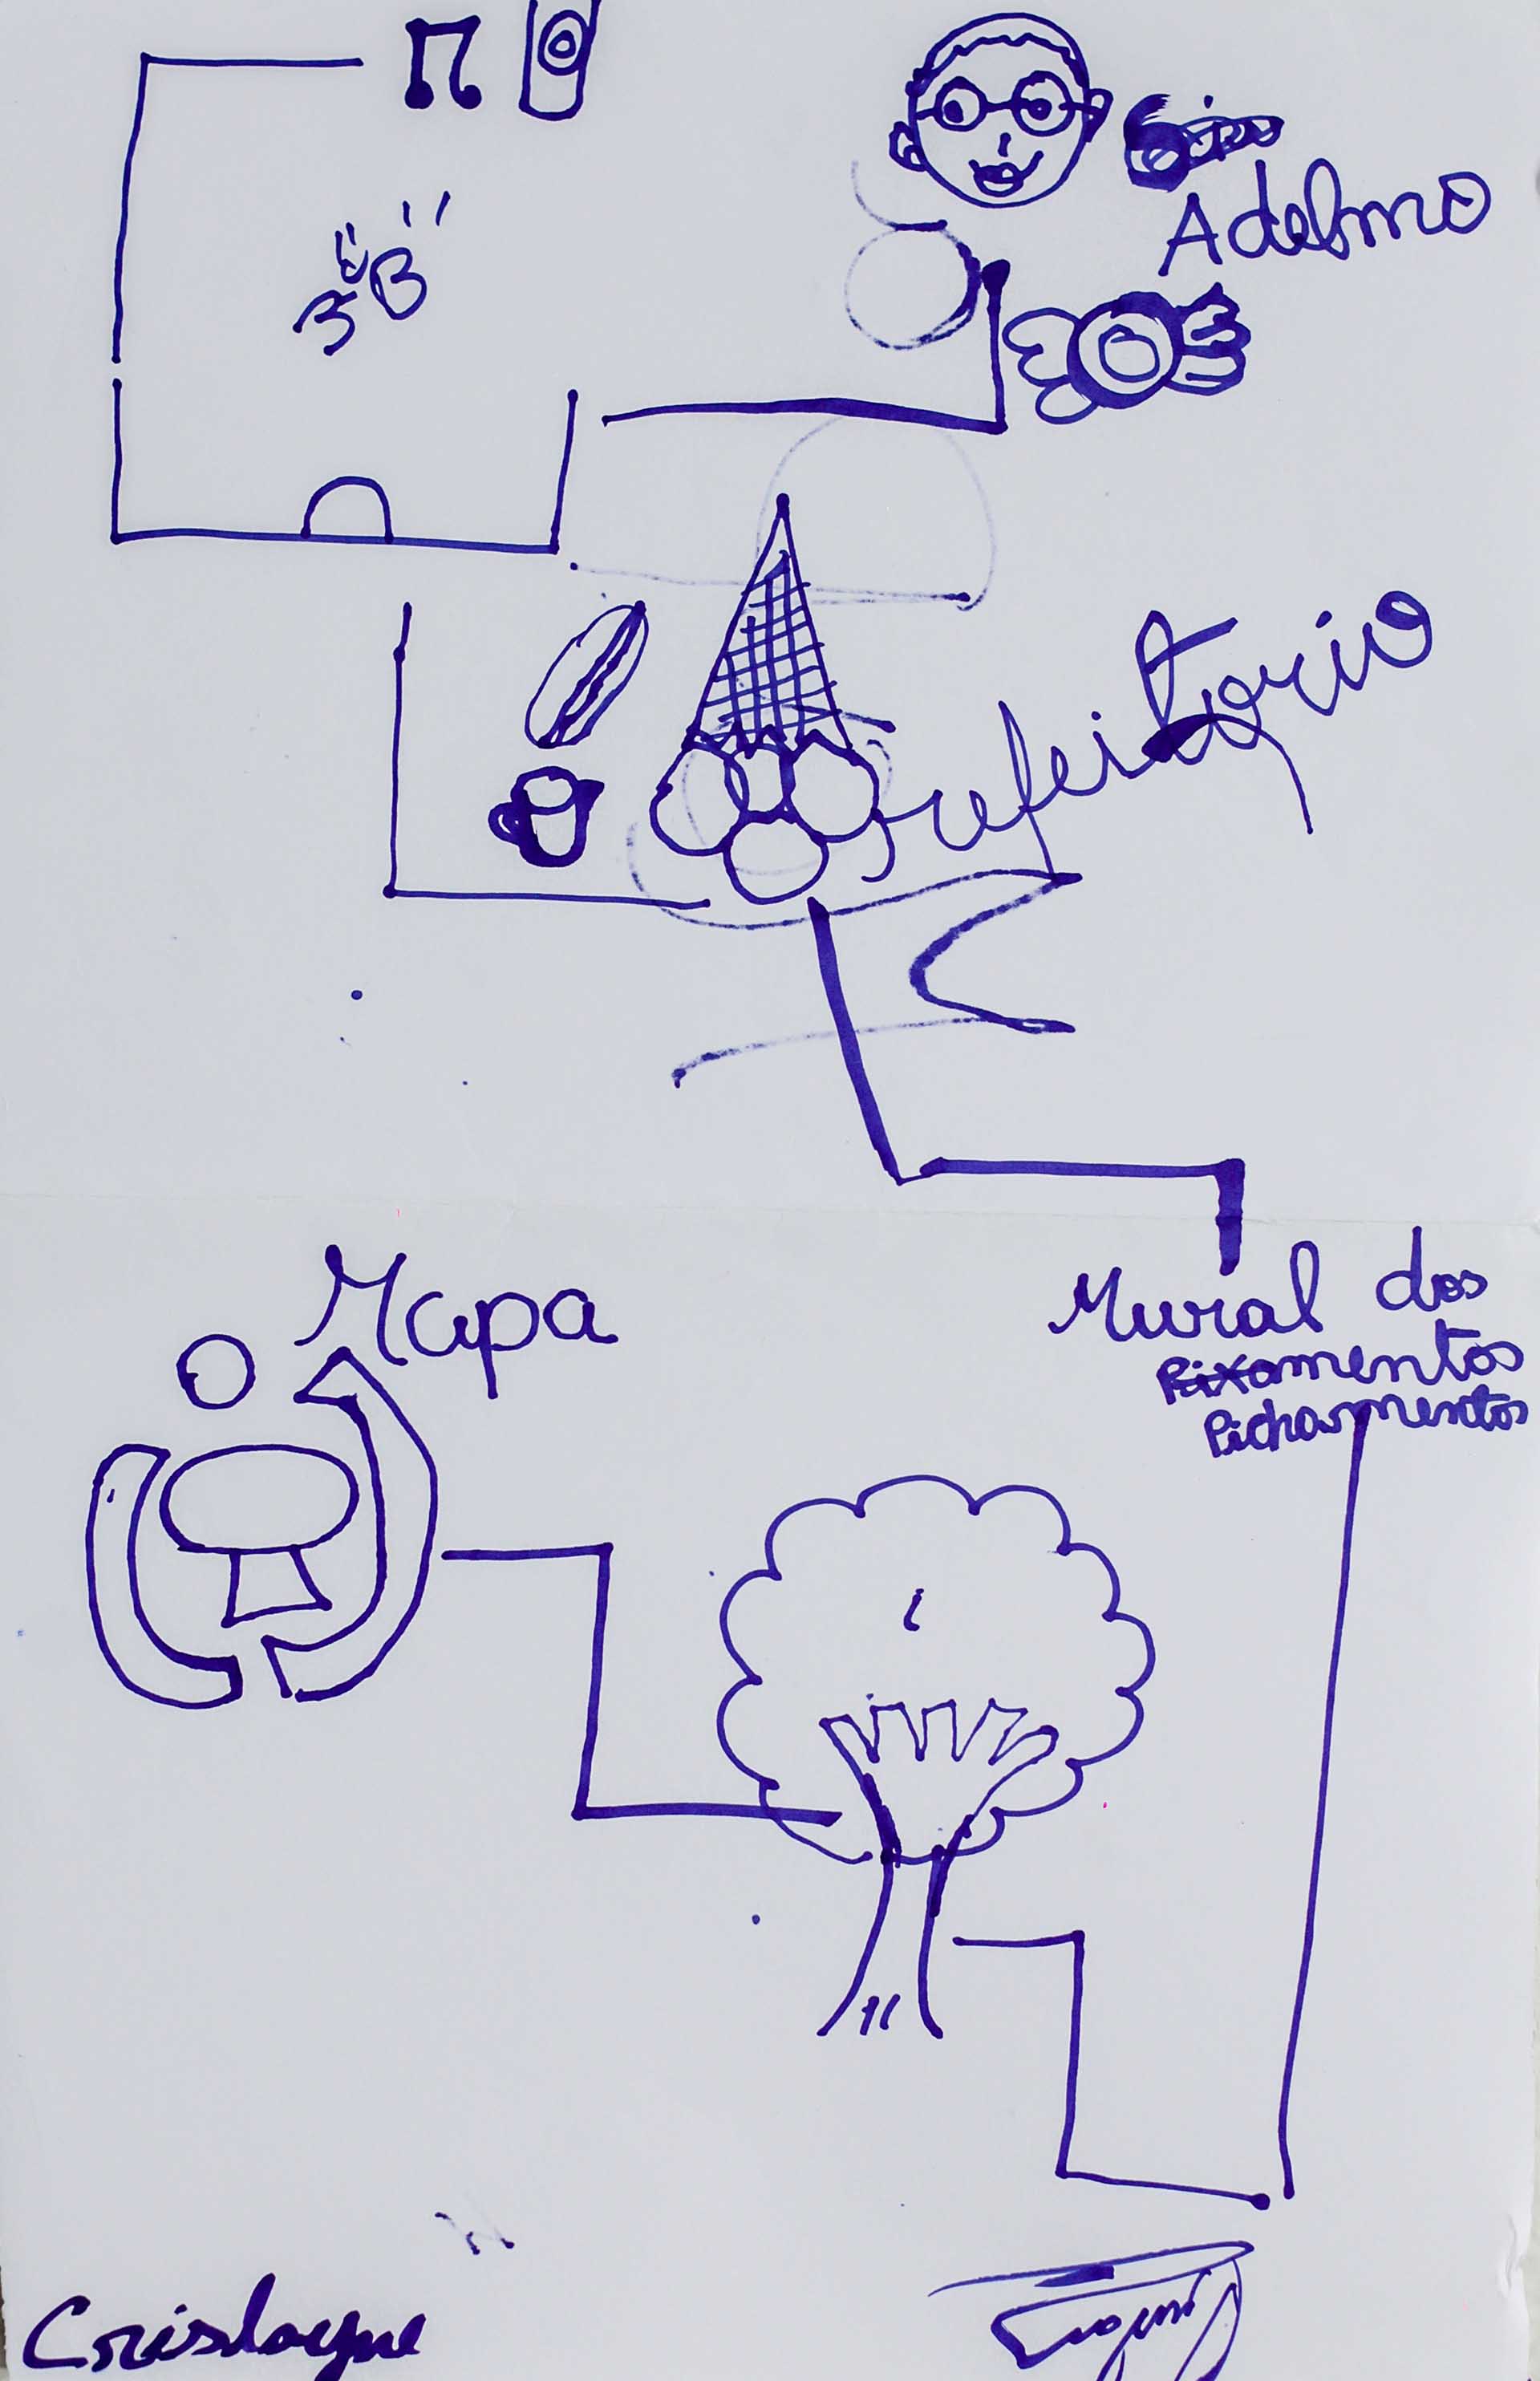 Adelmo
refeitorio
Mapa
Mural dos
Pixamentos
Pichamentos
Crislayne